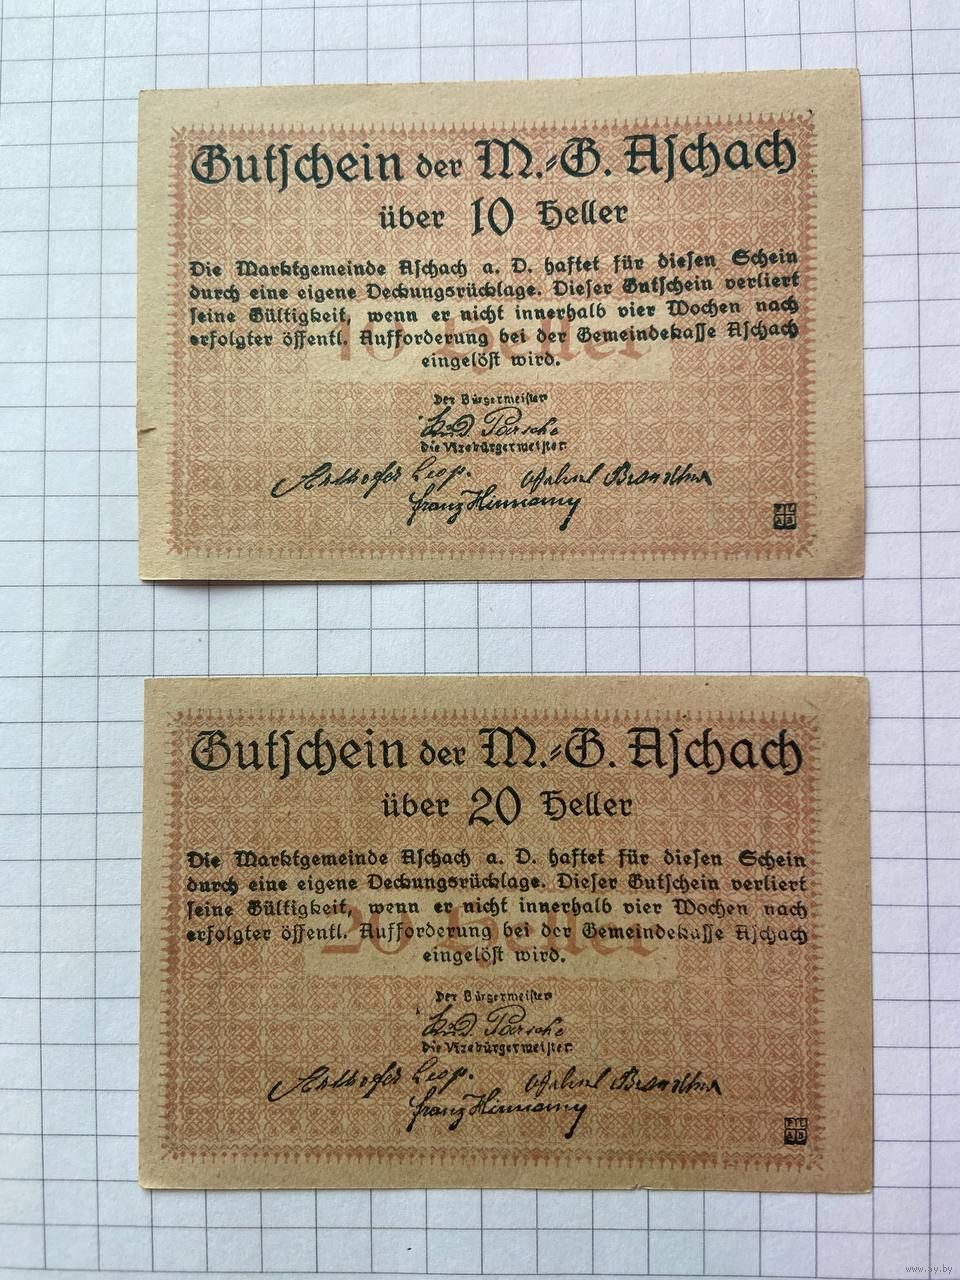 Gutschein der M.-G. Aschach
über 10 Heller
Die Marktgemeinde Aschach a. D. haftet für diesen Schein
durch eine eigene Deckungsrücklage. Dieser Gutschein verliert
seine Gültigkeit, wenn er nicht innerhalb vier Wochen nach
erfolgter öffentl. Aufforderung bei der Gemeindekasse Aschach
eingelöst wird.
10 Heller
Der Bürgermeister
Die Vizebürgermeister
Leop.
Franz
Gutschein der M.-G. Aschach
über 20 Heller
Die Marktgemeinde Aschach a. D. haftet für diesen Schein
durch eine eigene Deckungsrücklage. Dieser Gutschein verliert
seine Gültigkeit, wenn er nicht innerhalb vier Wochen nach
erfolgter öffentl. Aufforderung bei der Gemeindekasse Aschach
eingelöst wird.
20 Heller
Der Bürgermeister
Die Vizebürgermeister
Leop.
Franz
www.ay.by